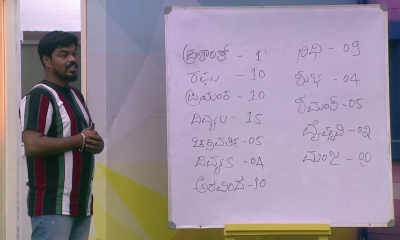 ಪ್ರಶಾಂತ್ - 1
ಶಘು - 10
ಪ್ರಿಯಾಂಕ - 10
ದಿವ್ಯಾ U - 15
ಚಕ್ರವರ್ತಿ - 05
ದಿವ್ಯಾ S - 04
ಅರವಿಂದ - 10
ನಿಧಿ - 09
ಶುಭ - 04
ಶಮಂತ್ - 05
ವೈಷ್ಣವಿ - 02
ಮಂಜು - 00